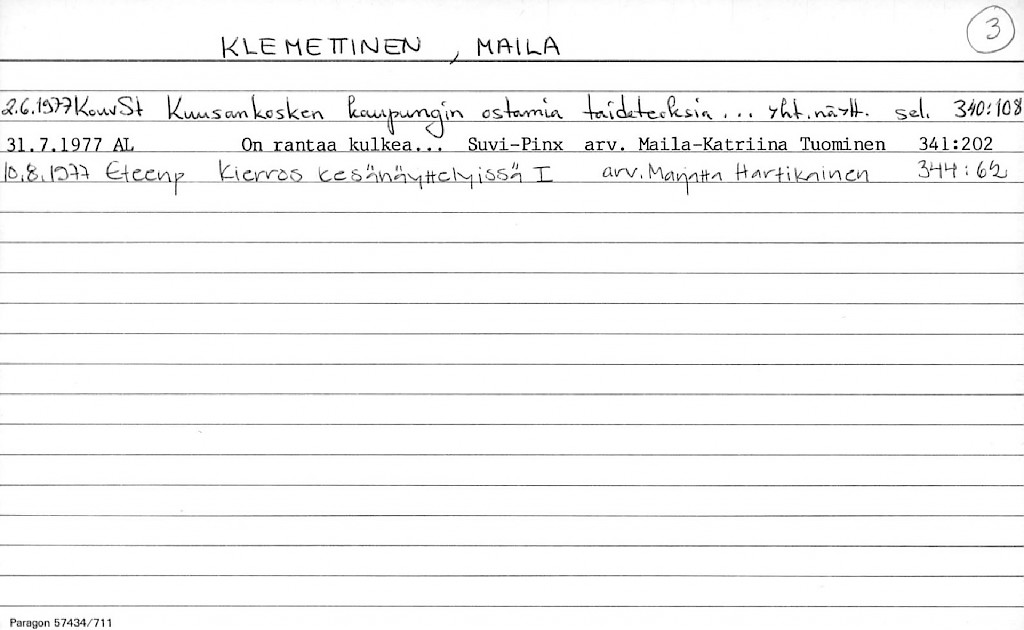 3
KLEMETTINEN, MAILA
2.6.1977 KouvSt Kuusankosken kaupungin ostamia taideteoksia... yht.näytt. sel. 340:108
31.7.1977 AL On rantaa kulkea... Suvi-Pinx arv. Maila-Katriina Tuominen 341:202
10.8.1977 Eteenp Kierros kesänäyttelyissä I arv. Marjatta Hartikainen 344:62
Paragon 57434/711